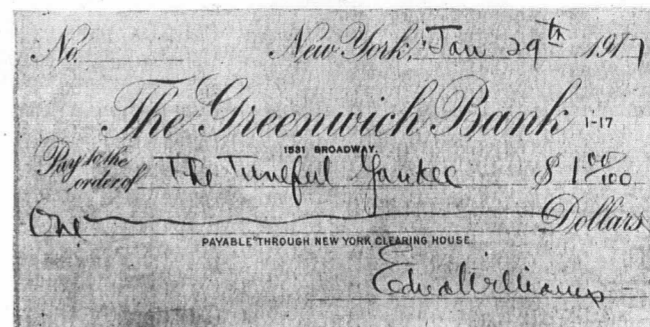 No. New York, Jan 29th 1917
The Greenwich Bank 1-17
1531 BROADWAY.
Pay to the order of The Tuneful Yankee $ 1 00/100
One Dollars
PAYABLE THROUGH NEW YORK CLEARING HOUSE
Edna Williams